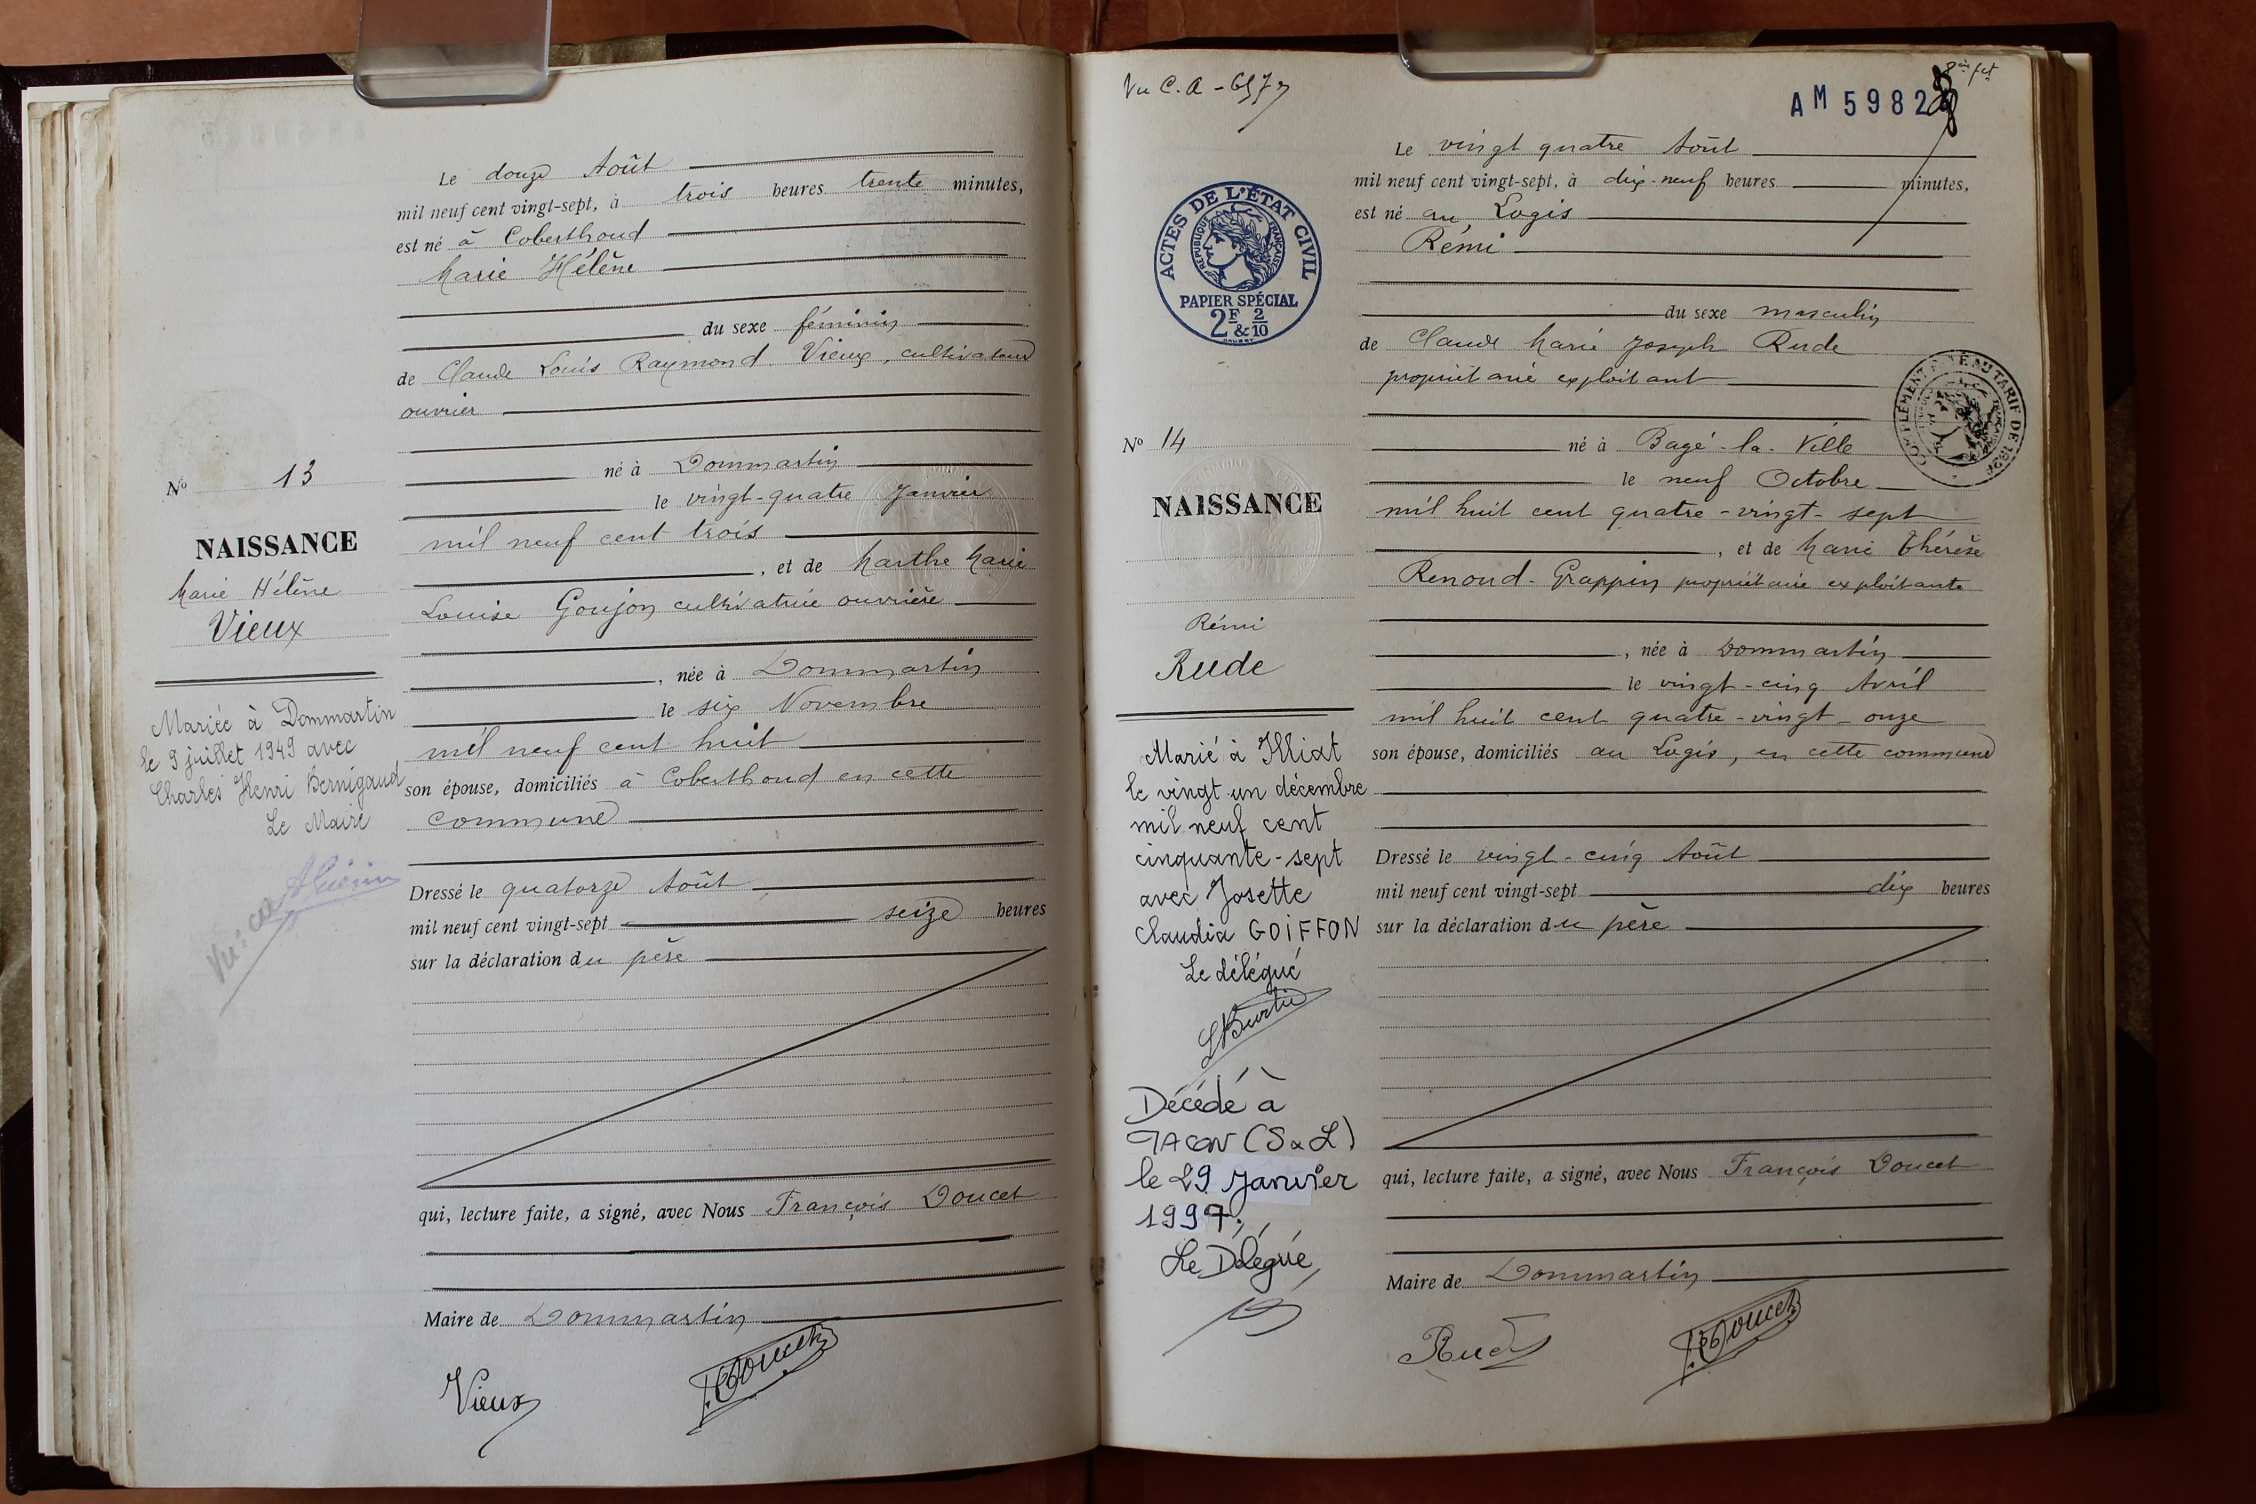 Le douze Août
mil neuf cent vingt-sept, à trois heures trente minutes,
est né à Coberthoud
Marie Hélène
du sexe féminin
de Claude Louis Raymond Vieux, cultivateur
ouvrier
né à Dommartin
le vingt-quatre Janvier
mil neuf cent trois
, et de Marthe Marie
Louise Goujon cultivatrice ouvrière
, née à Dommartin
le six Novembre
mil neuf cent huit
son épouse, domiciliés à Coberthoud en cette
commune
Dressé le quatorze Août
mil neuf cent vingt-sept seize heures
sur la déclaration du père
qui, lecture faite, a signé, avec Nous François Doucet
Maire de Dommartin
Vieux
F. Doucet
No 13
NAISSANCE
Marie Hélène
Vieux
Mariée à Dommartin
le 9 juillet 1949 avec
Charles Henri Bernigaud
Le Maire
Vu C.A -
AM 5982
Le vingt quatre Août
mil neuf cent vingt-sept, à dix-neuf heures minutes,
est né au Logis
Rémi
du sexe masculin
de Claude Marie Joseph Rude
propriétaire exploitant
né à Bagé-la-Ville
le neuf Octobre
mil huit cent quatre-vingt-sept
, et de Marie Thérèse
Renoud-Grappin propriétaire exploitante
, née à Dommartin
le vingt-cinq Avril
mil huit cent quatre-vingt-onze
son épouse, domiciliés au Logis, en cette commune
Dressé le vingt-cinq Août
mil neuf cent vingt-sept dix heures
sur la déclaration du père
qui, lecture faite, a signé, avec Nous François Doucet
Maire de Dommartin
Rude
F. Doucet
ACTES DE L'ÉTAT CIVIL
RÉPUBLIQUE FRANÇAISE
PAPIER SPÉCIAL
2F & 2/10
No 14
NAISSANCE
Rémi
Rude
Marié à Illiat
le vingt un décembre
mil neuf cent
cinquante-sept
avec Josette
Claudia GOIFFON
Le délégué
Décédé à
MACON (S & L)
le 29 Janvier
1997.
Le Délégué